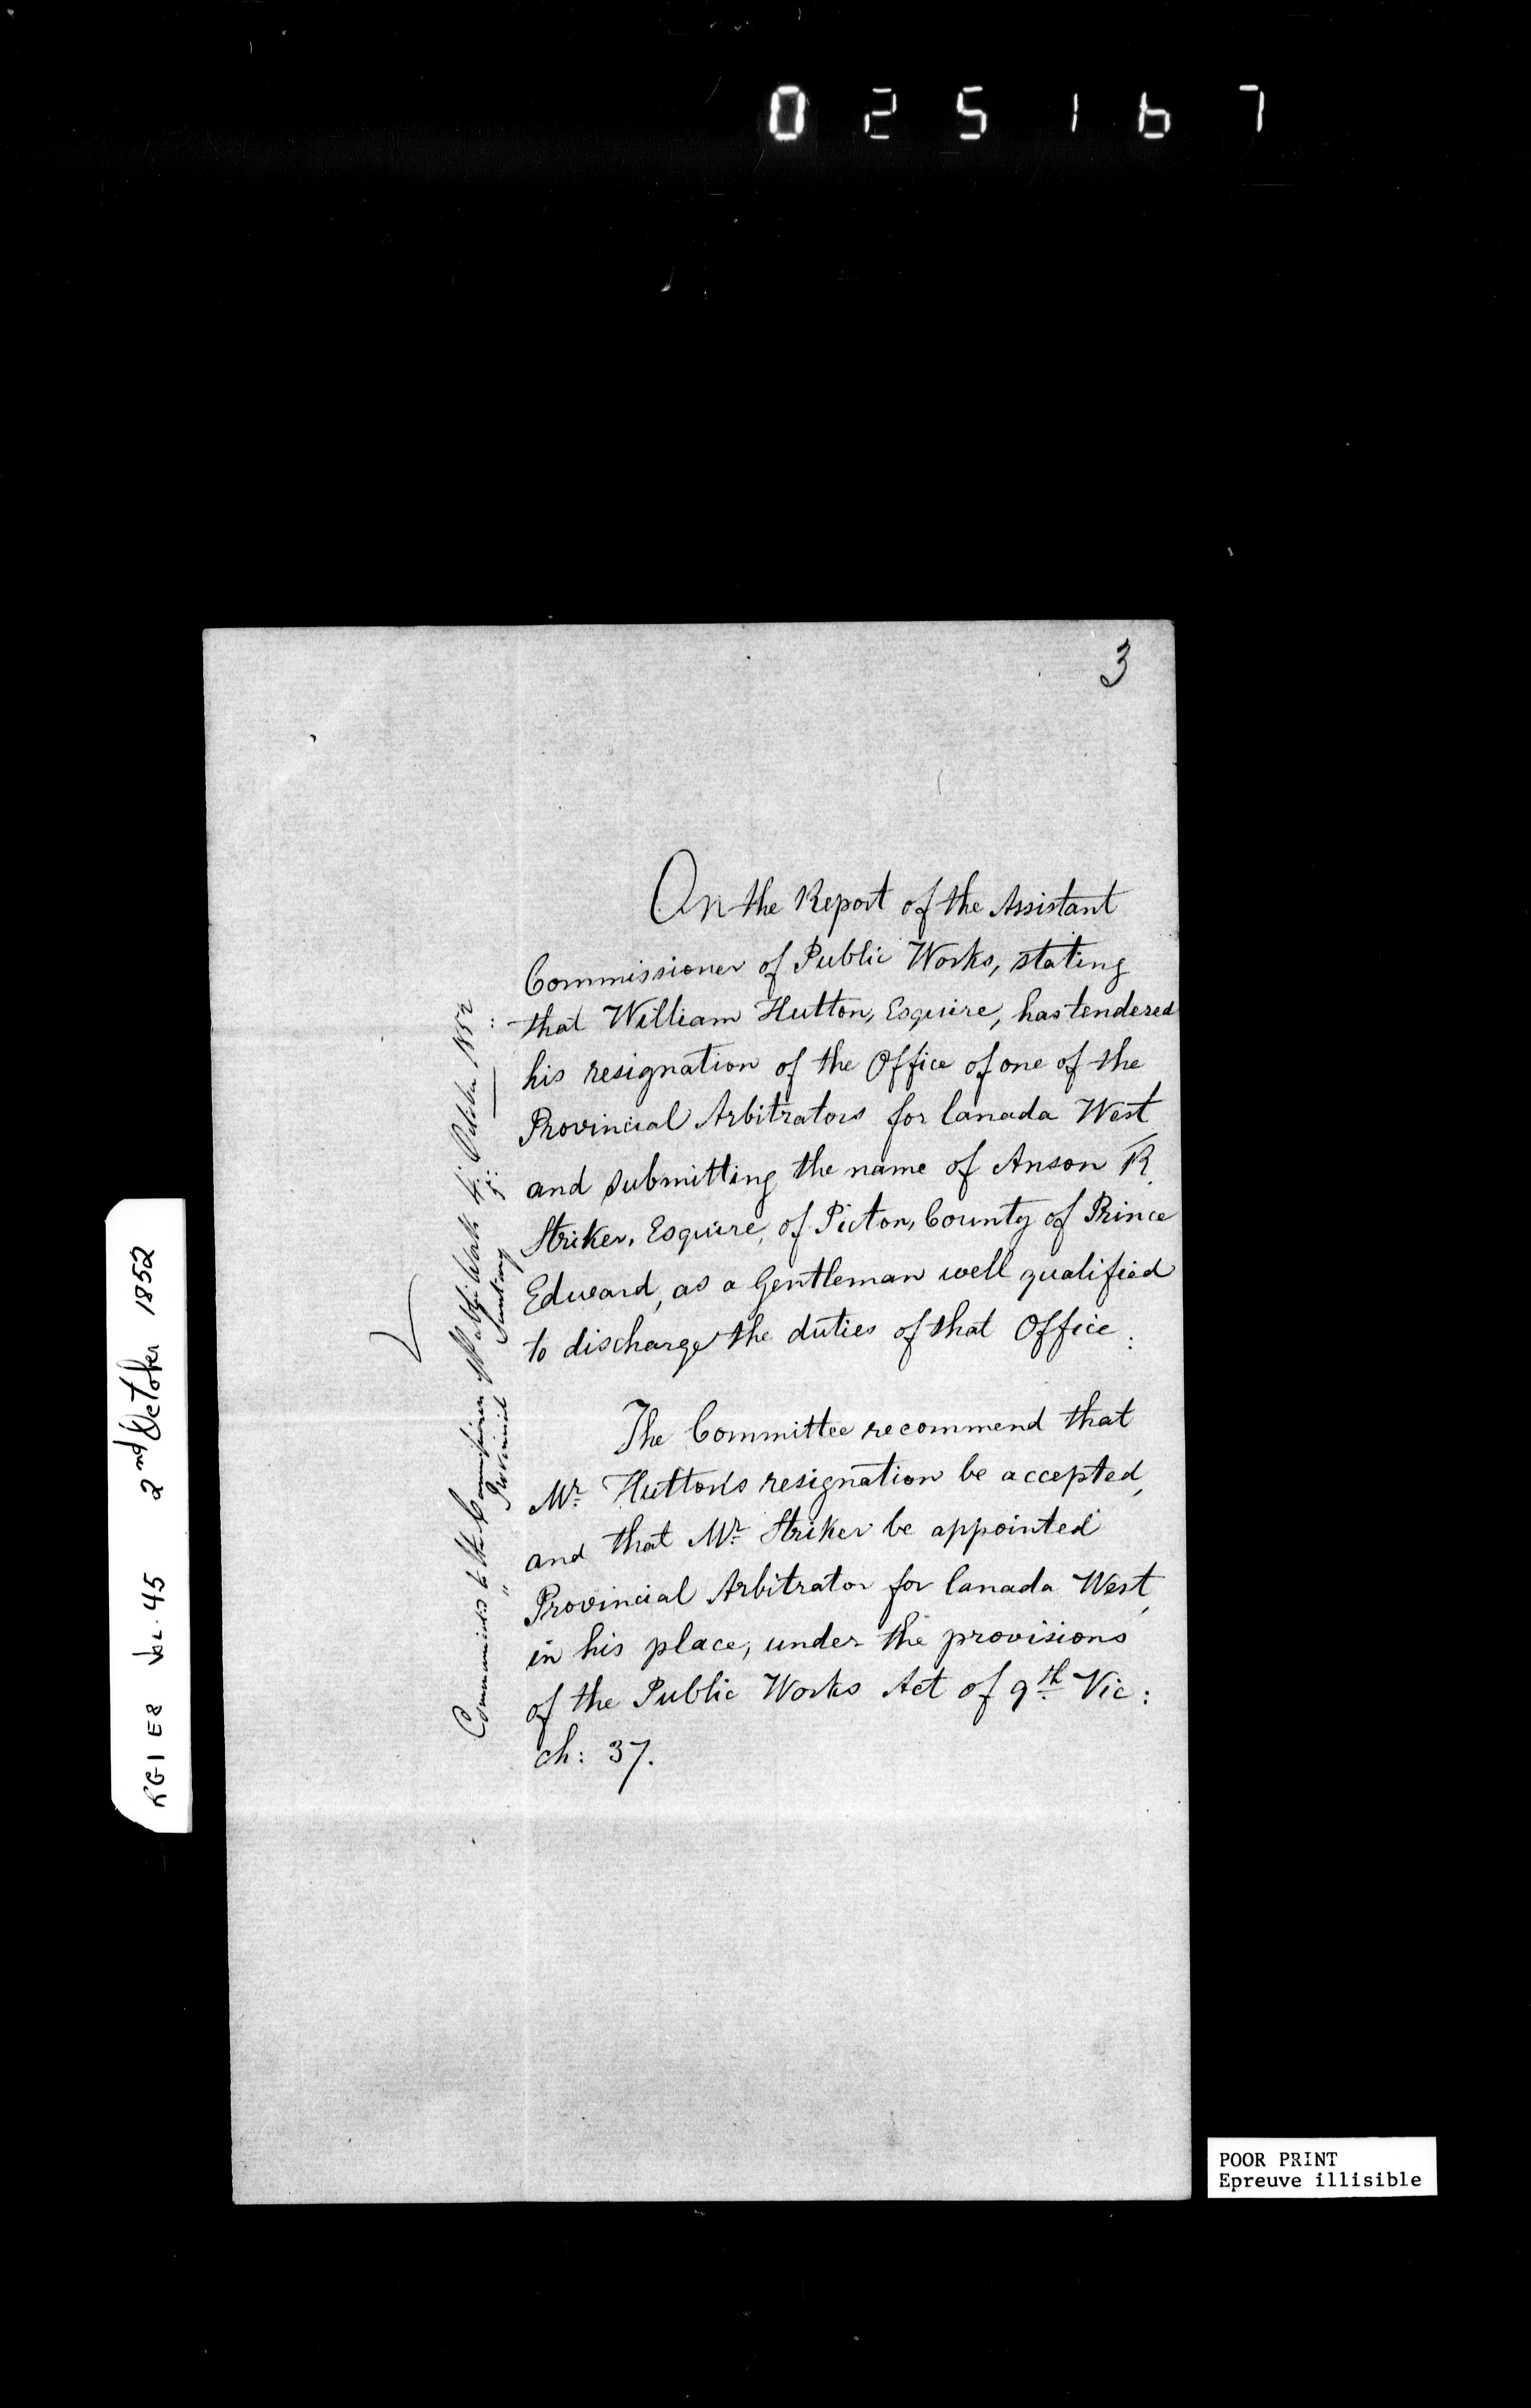 025167
3
On the Report of the Assistant
Commissioner of Public Works, stating
that William Hutton, Esquire, has tendered
his resignation of the Office of one of the
Provincial Arbitrators for Canada West,
and submitting the name of Anson R.
Striker, Esquire, of Picton, County of Prince
Edward, as a Gentleman well qualified
to discharge the duties of that Office.
The Committee recommend that
Mr. Hutton's resignation be accepted,
and that Mr. Striker be appointed
Provincial Arbitrator for Canada West,
in his place, under the provisions
of the Public Works Act of 9th Vic:
ch: 37.
Communicated to the Commissioner of Public Works 4: October 1852
" Provincial Secretary 5: :
RG1 E8 Vol. 45 2nd October 1852
POOR PRINT
Epreuve illisible